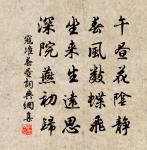 午暑花陰靜
春風數蝶飛
坐来生遠思
深院燕初歸
寇准春晝詞典網集